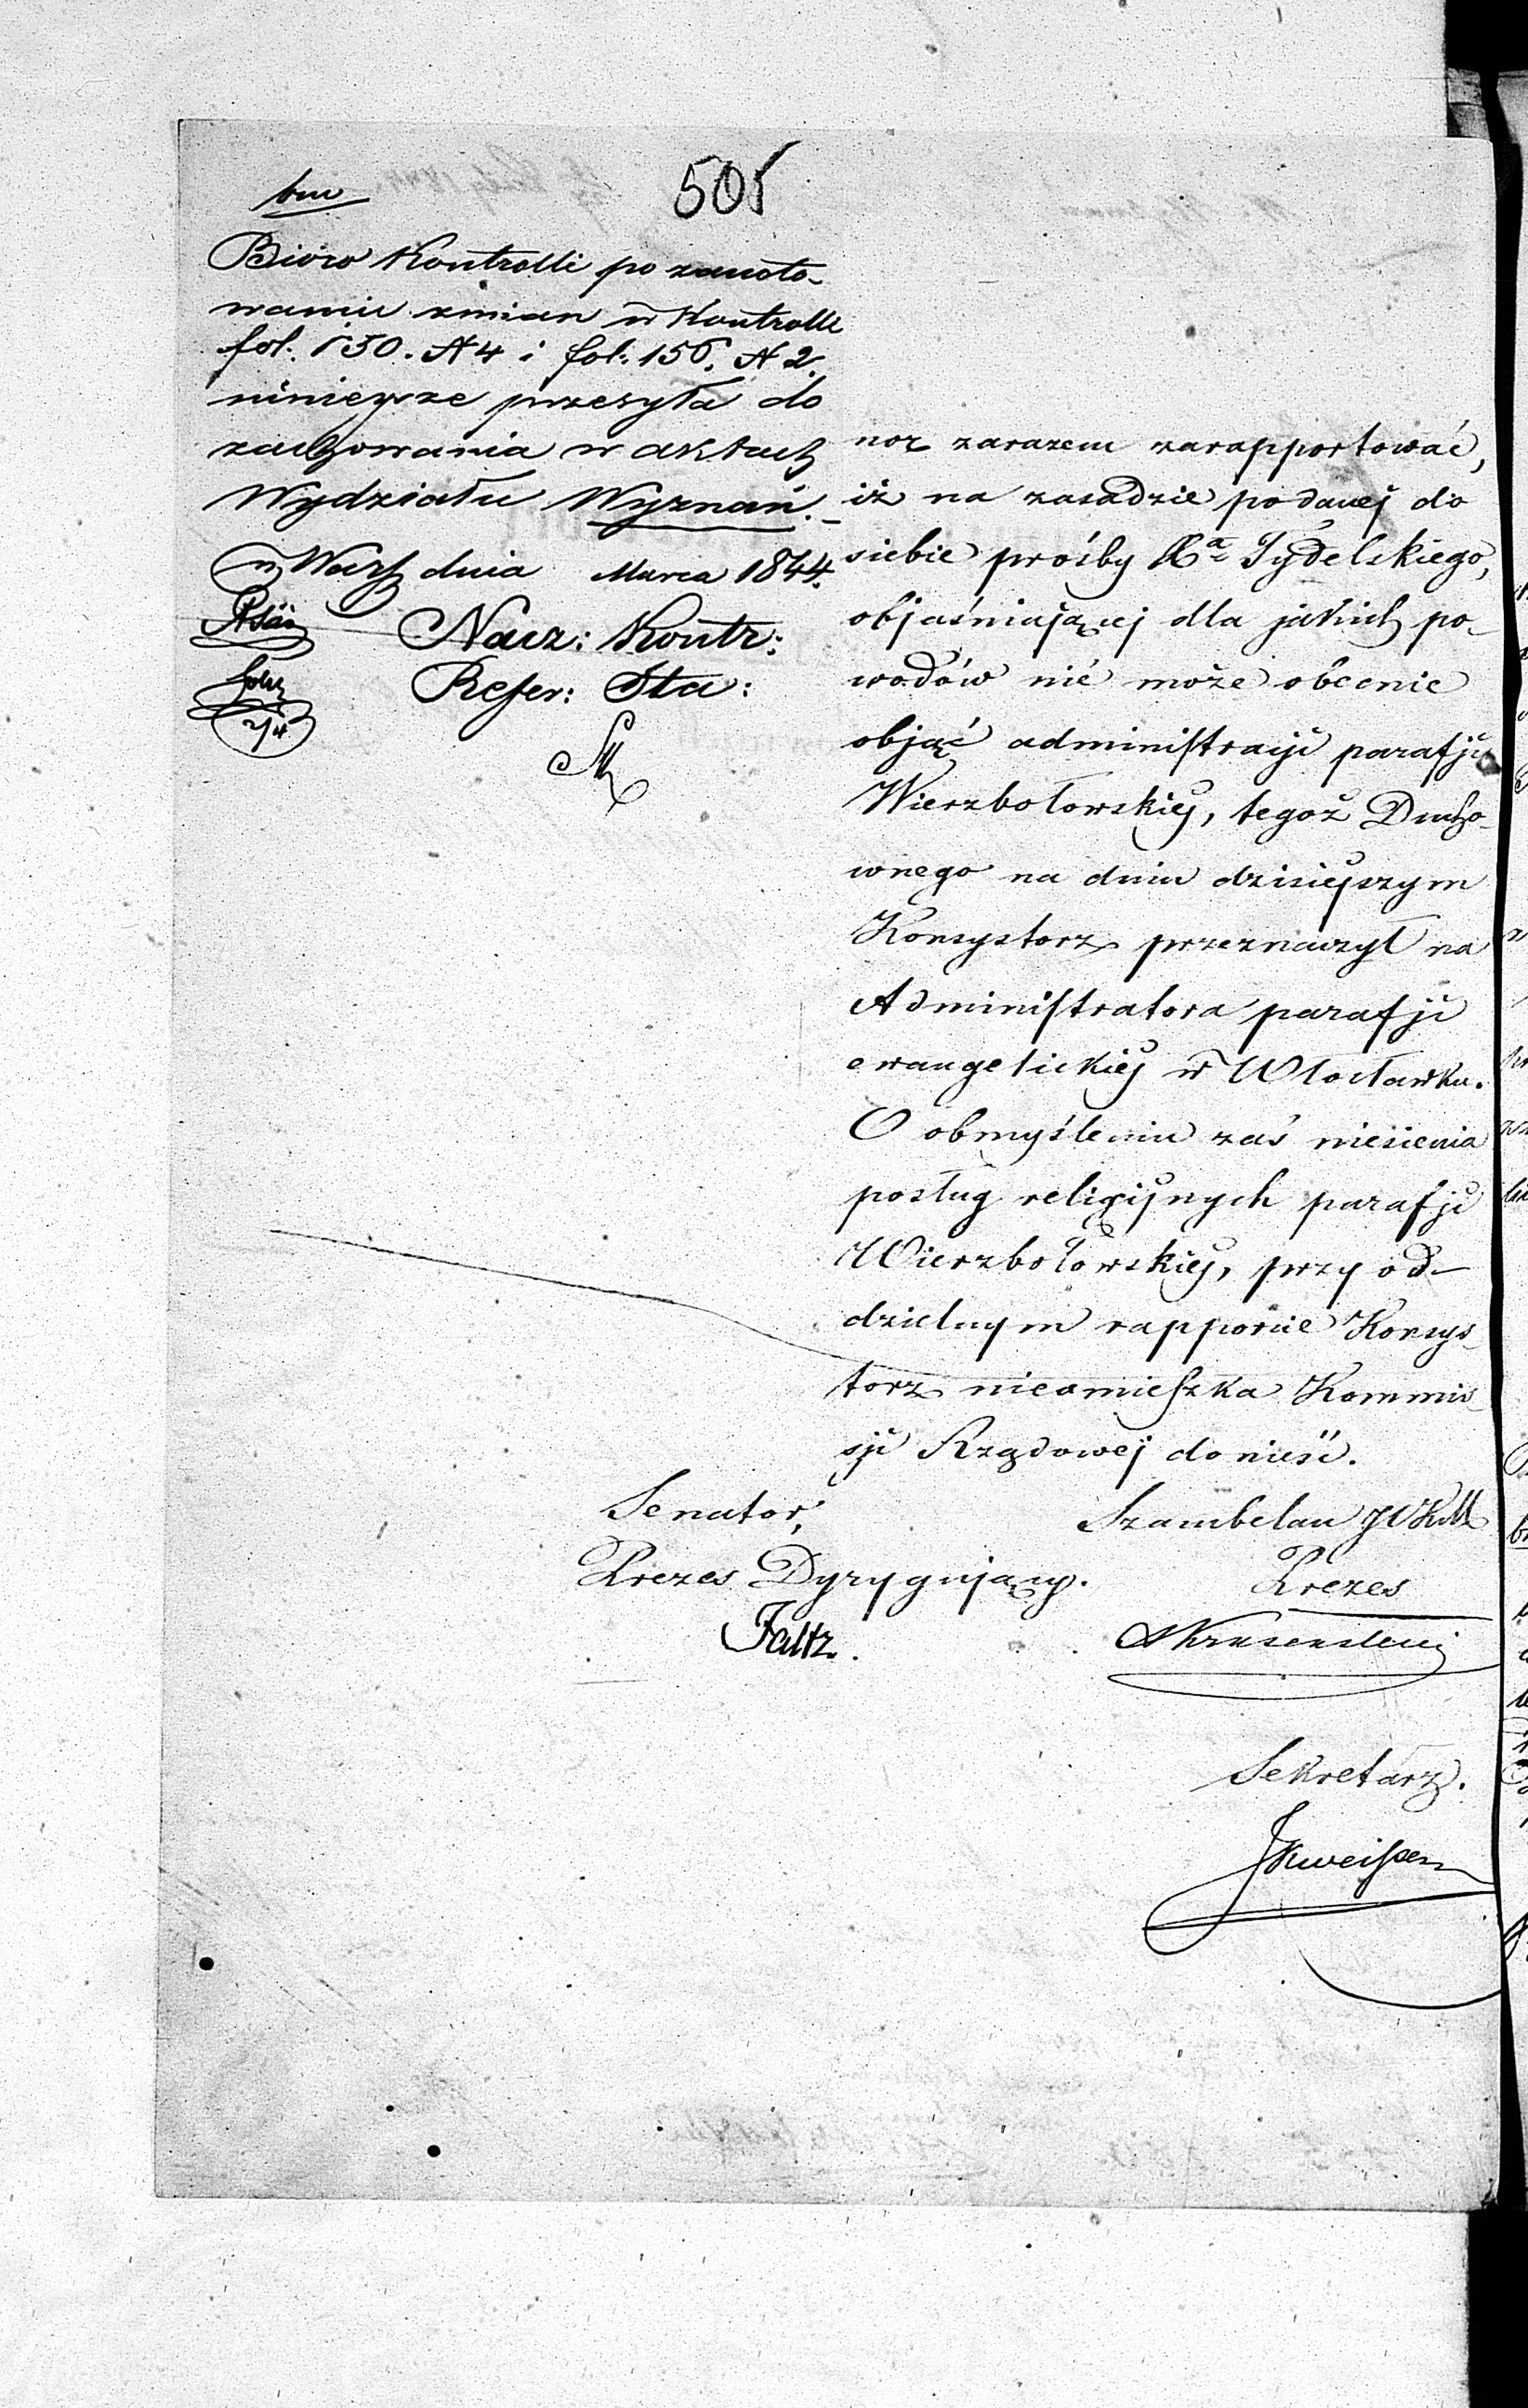 505
bm
Bióro Kontrolli po zanoto-
waniu zmian w Kontrolli
fol: 130. N 4 i fol: 156. N 2.
niniejsze przesyła do
zachowania w aktach
Wydziału Wyznań.-
w Warsz dnia Marca 1844.
Nacz: Kontr:
Refer: Sta:
noz zarazem zarapportować,
iż na zasadzie podanej do
siebie prośby Xa Sydelskiego,
objaśniającej dla jakich po-
wodów nié może obecnie
objąć administracji parafji
Wierzbołowskiej, tegoż Ducho-
wnego na dniu dzisiejszym
Konsystorz przeznaczył na
Administratora parafji
ewangelickiej w Włocławku.
O obmyśleniu zaś niesienia
posług religijnych parafji
Wierzbołowskiej, przy od-
dzielnym rapporcie Konsys-
torz nieomieszka Kommis-
sji Rządowej donieść.
Senator,
Prezes Dyrygujący.
Faltz.
Szambelan JCKM
Prezes
Sekretarz.